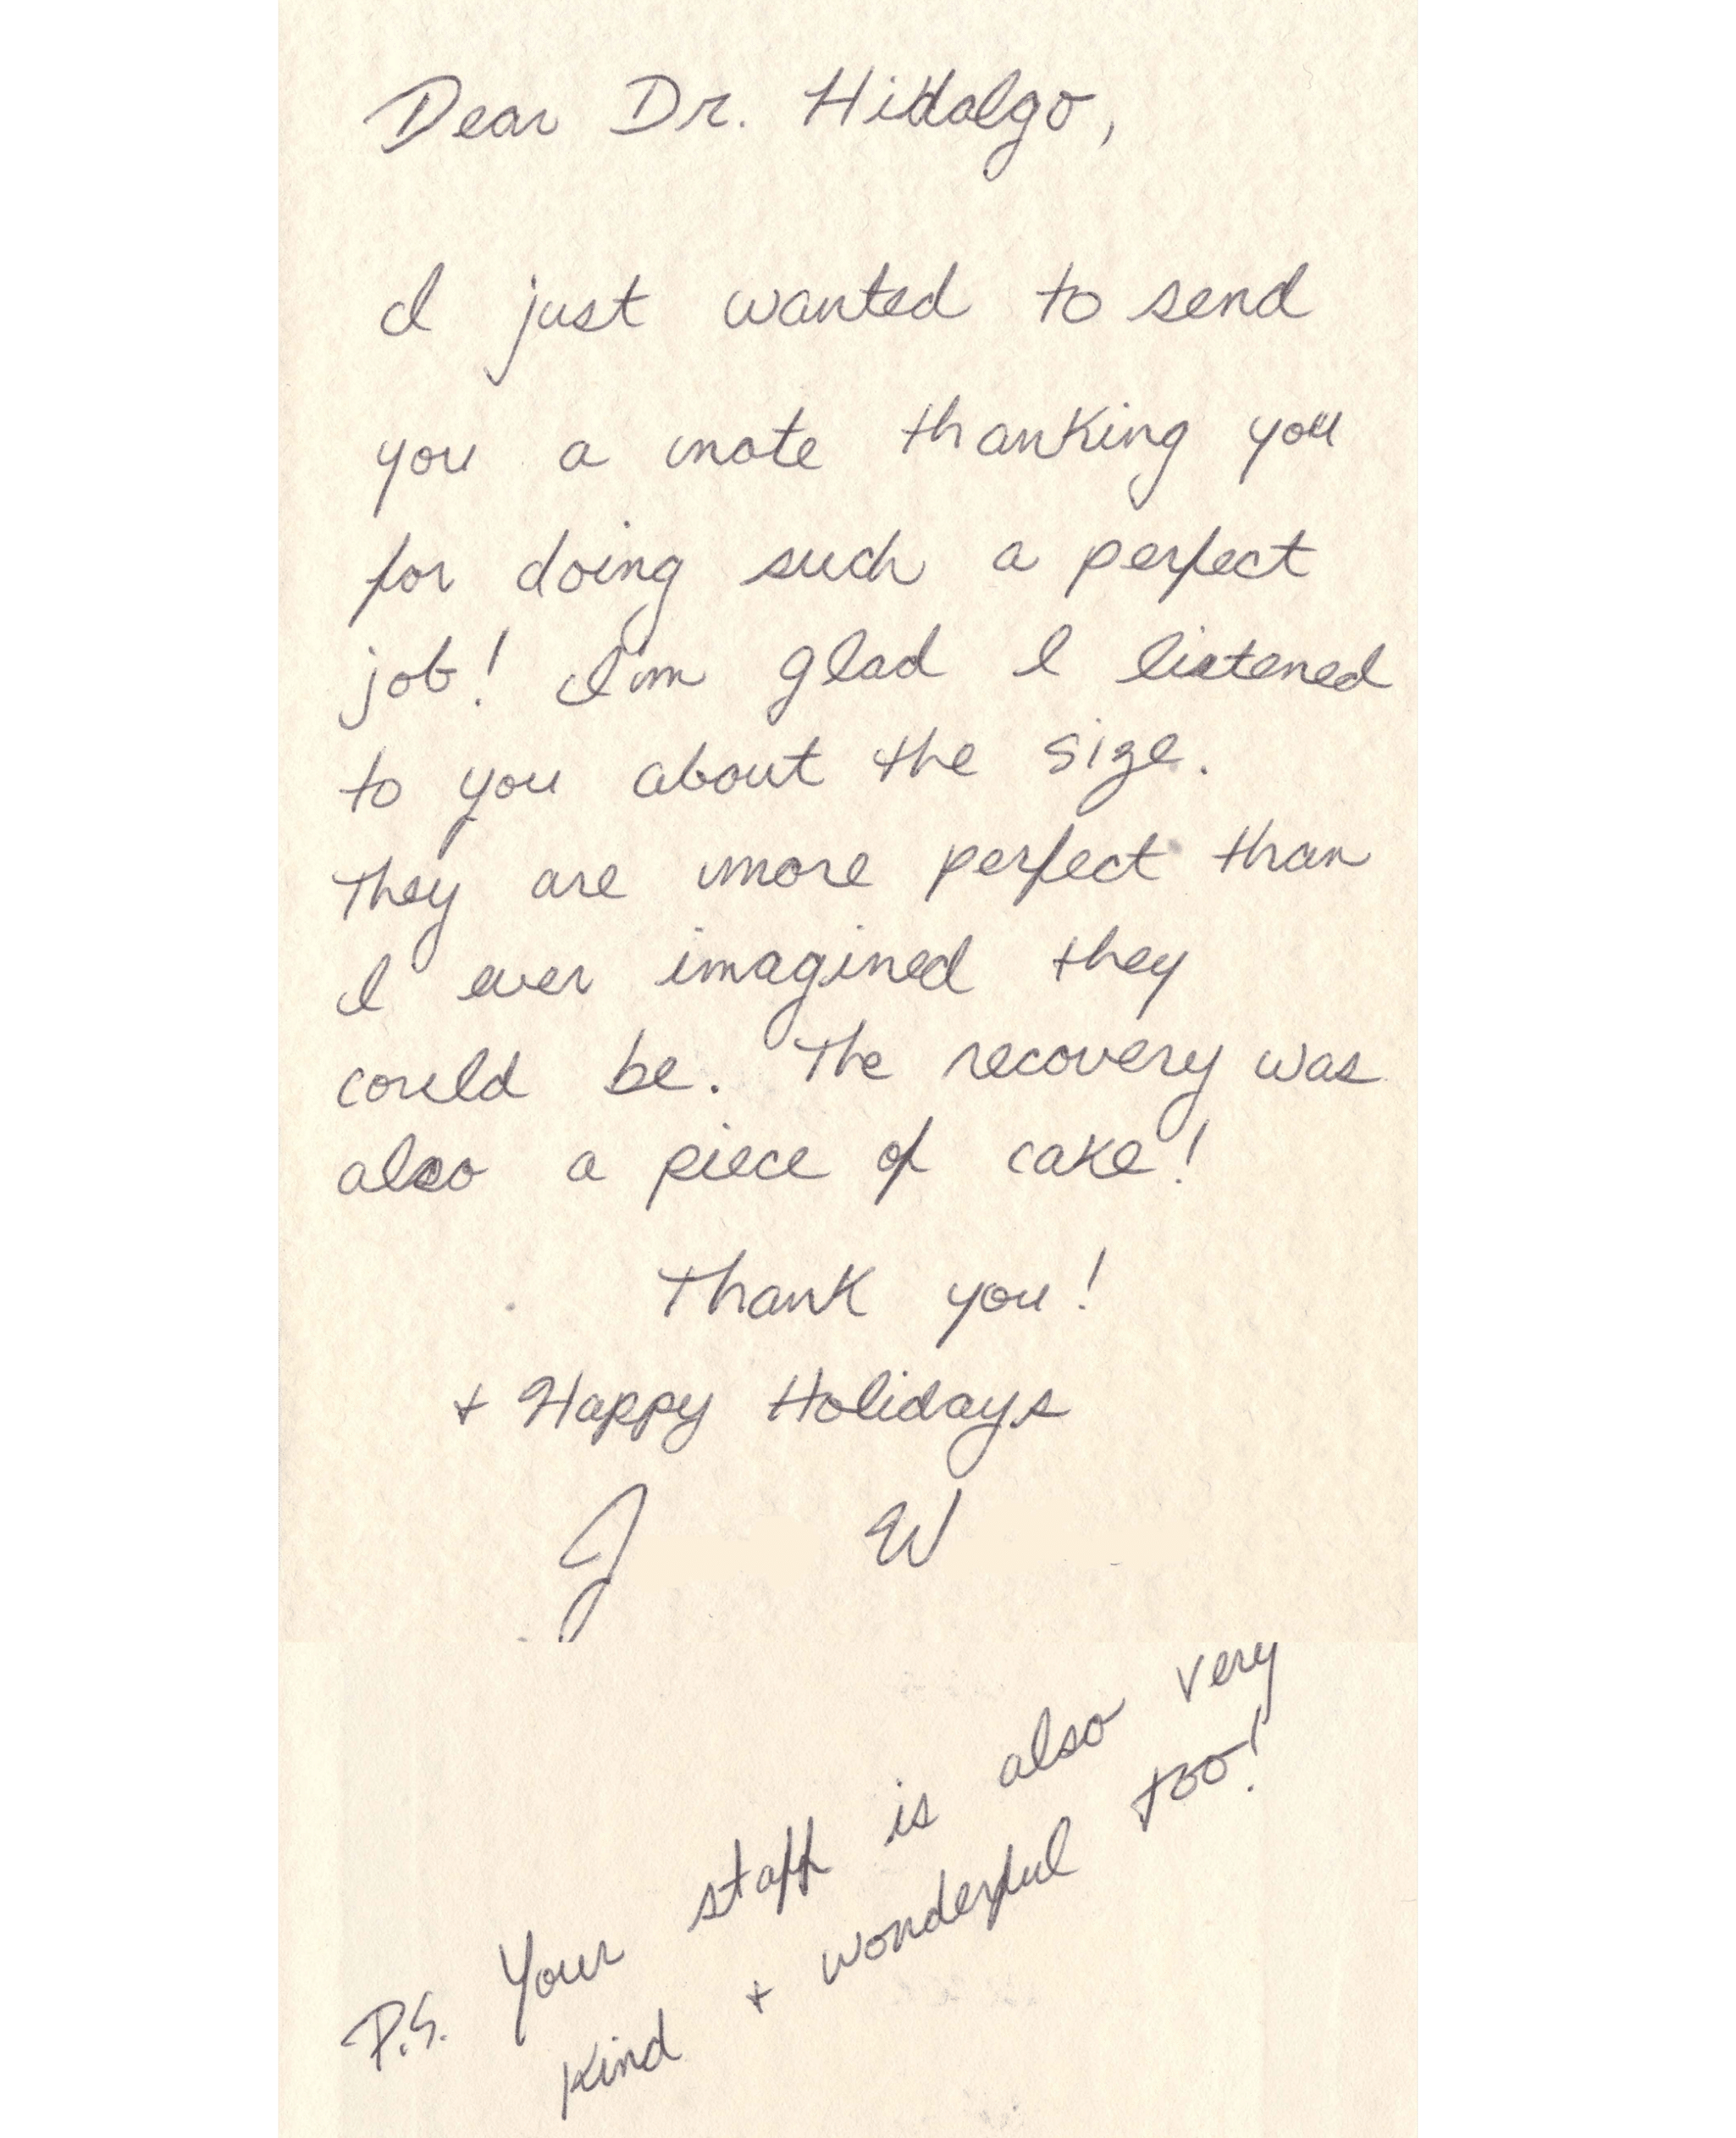 Dear Dr. Hidalgo,
I just wanted to send
you a note thanking you
for doing such a perfect
job! I'm glad I listened
to you about the size.
They are more perfect than
I ever imagined they
could be. The recovery was
also a piece of cake!
Thank you!
+ Happy Holidays
J W
P.S. Your staff is also very
kind + wonderful too!